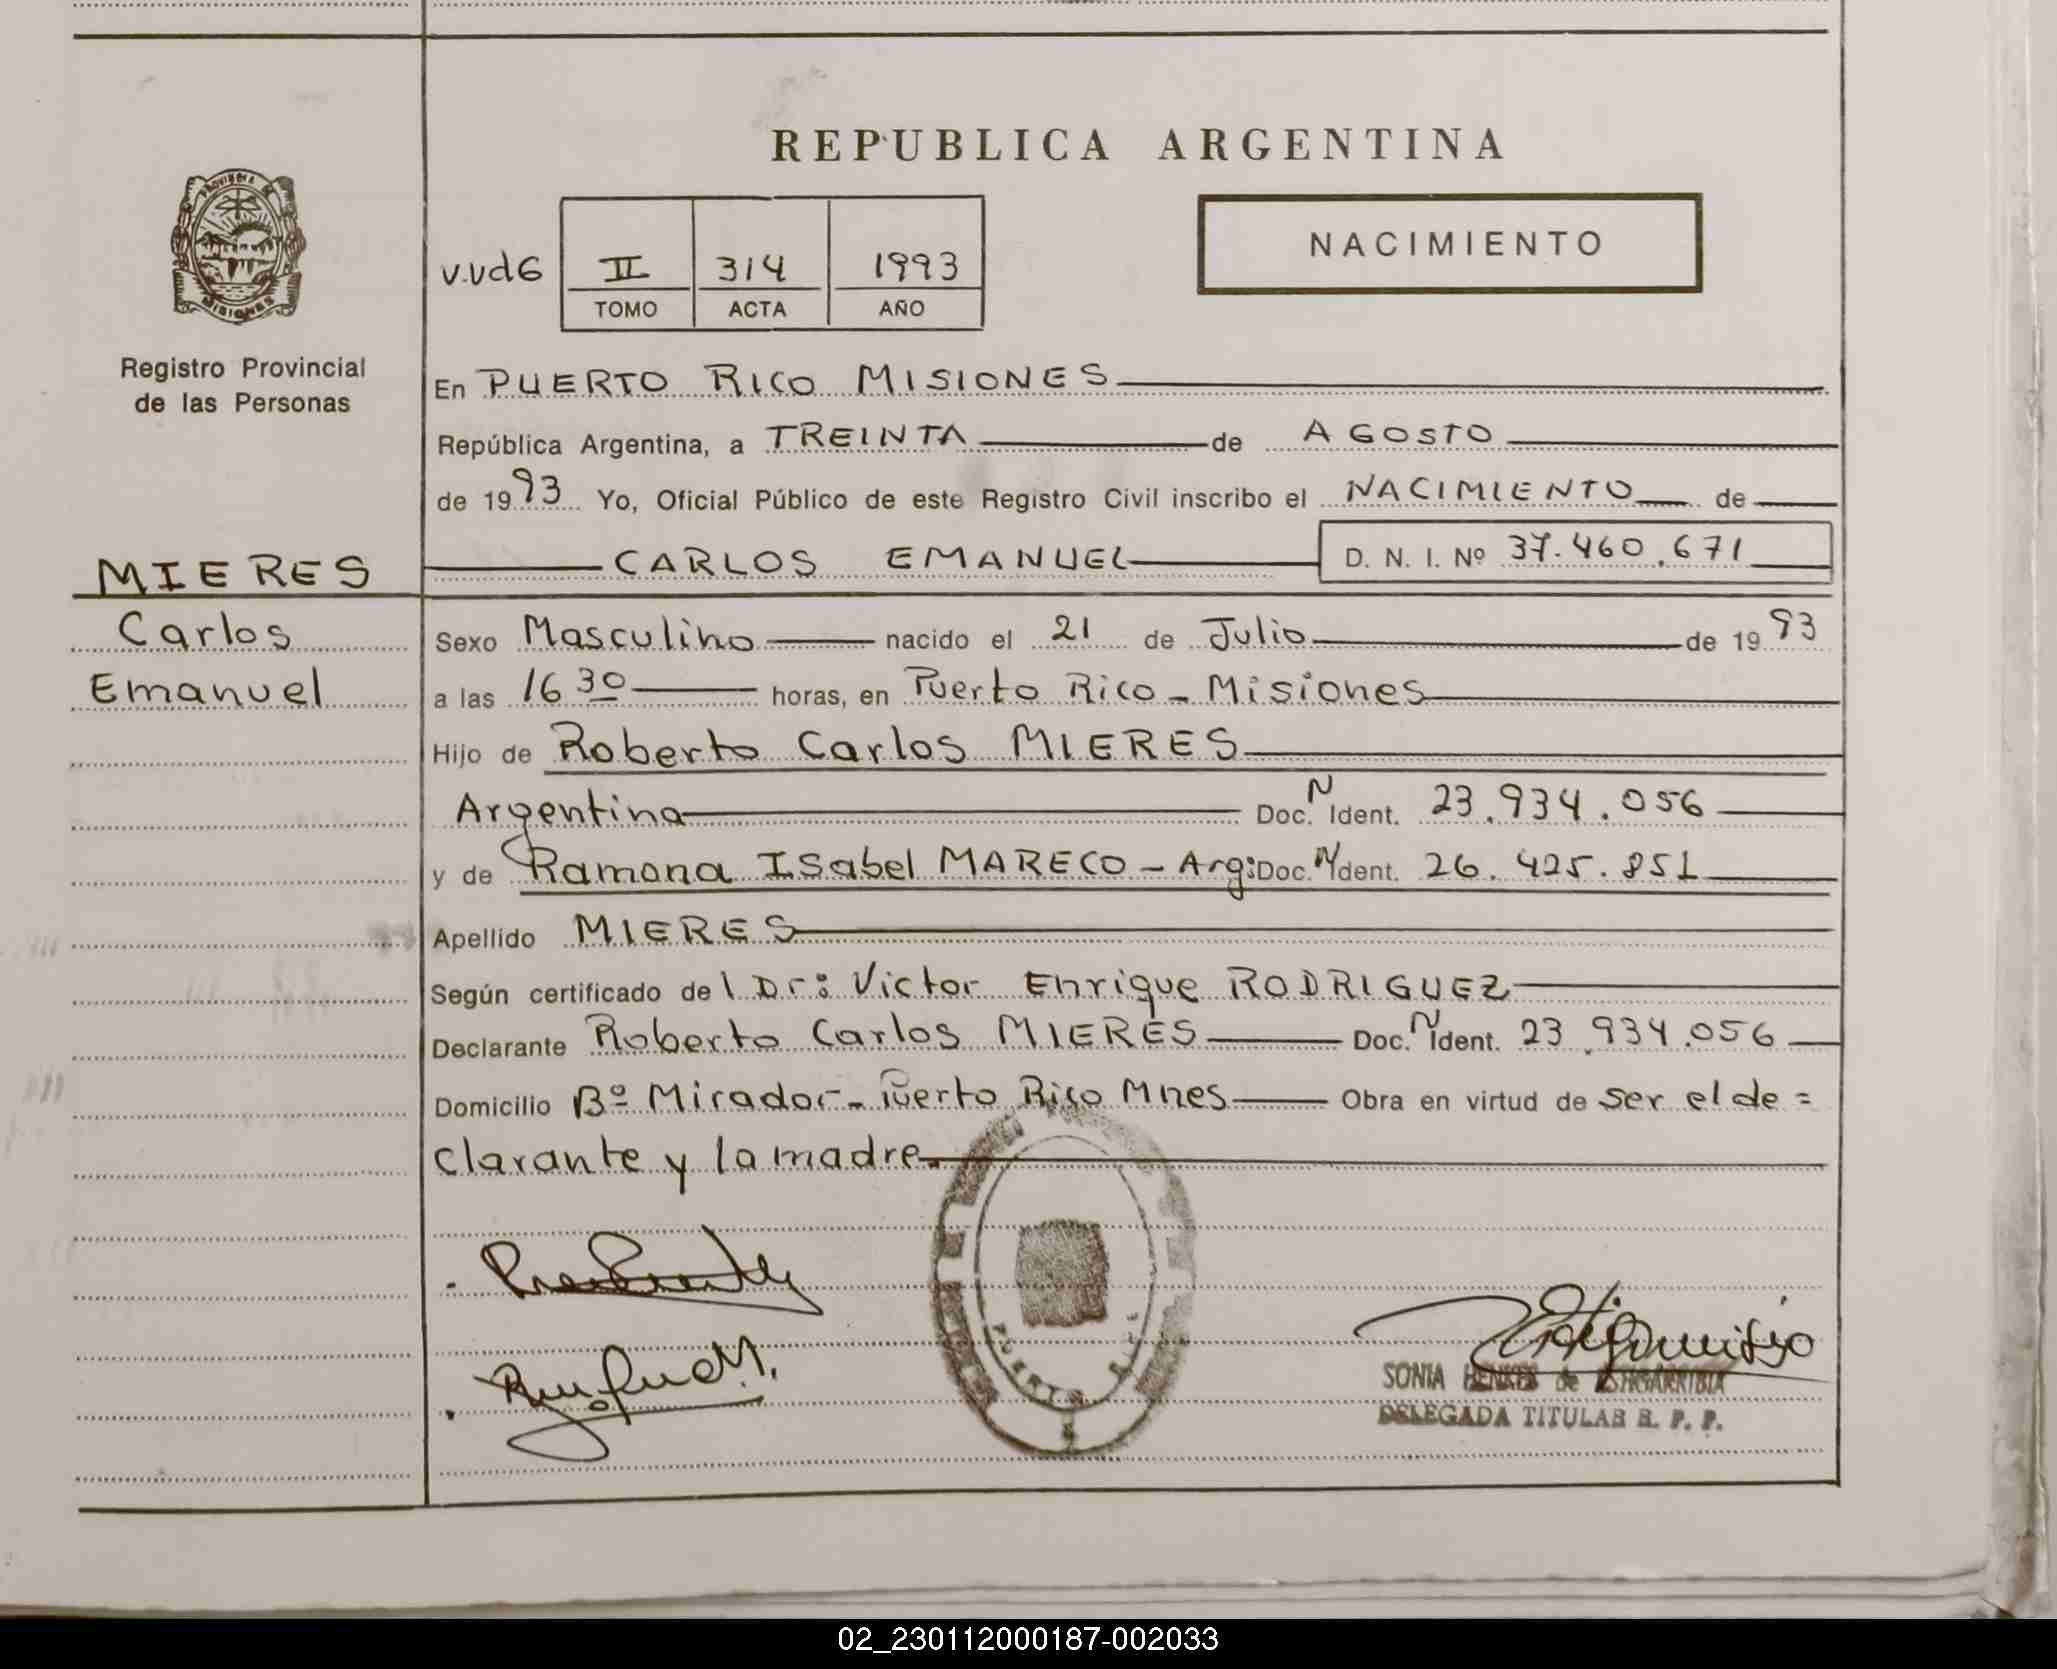 REPUBLICA ARGENTINA
PROVINCIA DE
MISIONES
Registro Provincial
de las Personas
NACIMIENTO
v.vd6 II 314 1993
TOMO ACTA AÑO
En PUERTO RICO MISIONES
República Argentina, a TREINTA de AGOSTO
de 1993 Yo, Oficial Público de este Registro Civil inscribo el NACIMIENTO de
CARLOS EMANUEL D. N. I. Nº 37.460.671
MIERES
Carlos
Emanuel
Sexo Masculino nacido el 21 de Julio de 1993
a las 16 30 horas, en Puerto Rico - Misiones
Hijo de Roberto Carlos MIERES
Argentina Doc. N Ident. 23.934.056
y de Ramona Isabel MARECO - Arg: Doc. N Ident. 26.425.851
Apellido MIERES
Según certificado del Dr: Victor Enrique RODRIGUEZ
Declarante Roberto Carlos MIERES Doc. N Ident. 23.934.056
Domicilio Bº Mirador - Puerto Rico Mnes Obra en virtud de ser el de=
clarante y la madre.
PUERTO RICO
SONIA HENKES de ESTIGARRIBIA
DELEGADA TITULAR R. P. P.
02_230112000187-002033